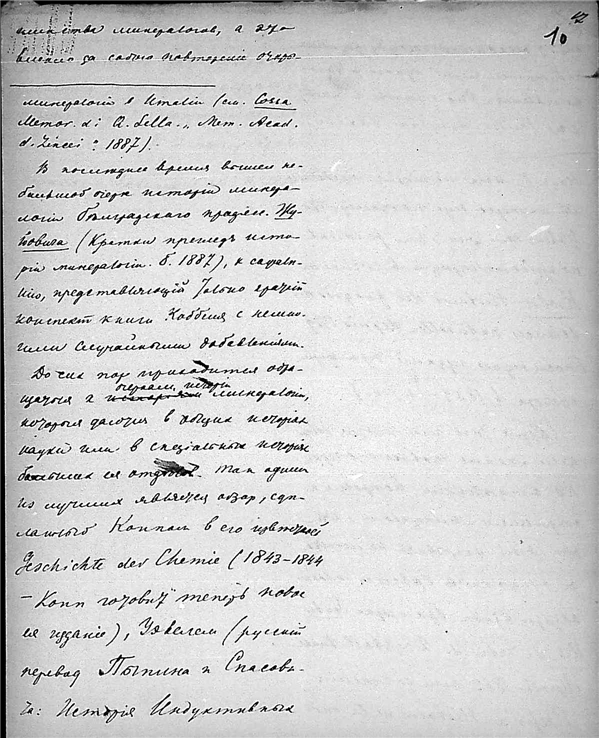 10
минералогов, а это
за собою повторение
минералогіи в Италіи (см. Cossa
Memor. di Q. Sella. „ Mem. Acad.
d. Lincei " 1887).
В последнее время вышел не-
большой очерк исторіи минера-
логіи белградскаго професс. Жу-
йовича (Кратки преглед исто-
ріи минералогіи. Б. 1887), к сожале-
нію, представляющій только краткій
конспект книги Кобелля с немно-
гими случайными добавленіями.
До сих пор приходится обра-
щаться к очеркам исторіи минералогіи,
которые даются в общих исторіях
науки или в спеціальных исторіях
ея. Так одним
из лучших является обзор, сде-
ланный Коппом в его известной
Geschichte der Chemie (1843-1844
– Копп готовит теперь новое
ея изданіе), Уэвелем (русскій
перевод Пыпина и Спасови-
ча: Исторія Индуктивных